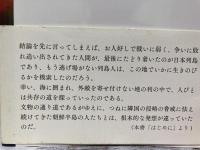 結論を先に言ってしまえば、お人好しで戦いに弱く、争いに敗
れ追い出されてきた人間が、最後にたどり着いたのが日本列島
であり、もう逃げ場がない列島人は、この地でいかに生きのび
るかを模索したのだろう。
幸い、海に囲まれ、外敵を寄せ付けない地の利の中で、人びと
は共存の道を探っていったのである。
文物の通り道であるがゆえに、つねに隣国の侵略の脅威に怯え
続けてきた朝鮮半島の人たちとは、根本的な発想が違っていた
のだ。
（本書「はじめに」より）